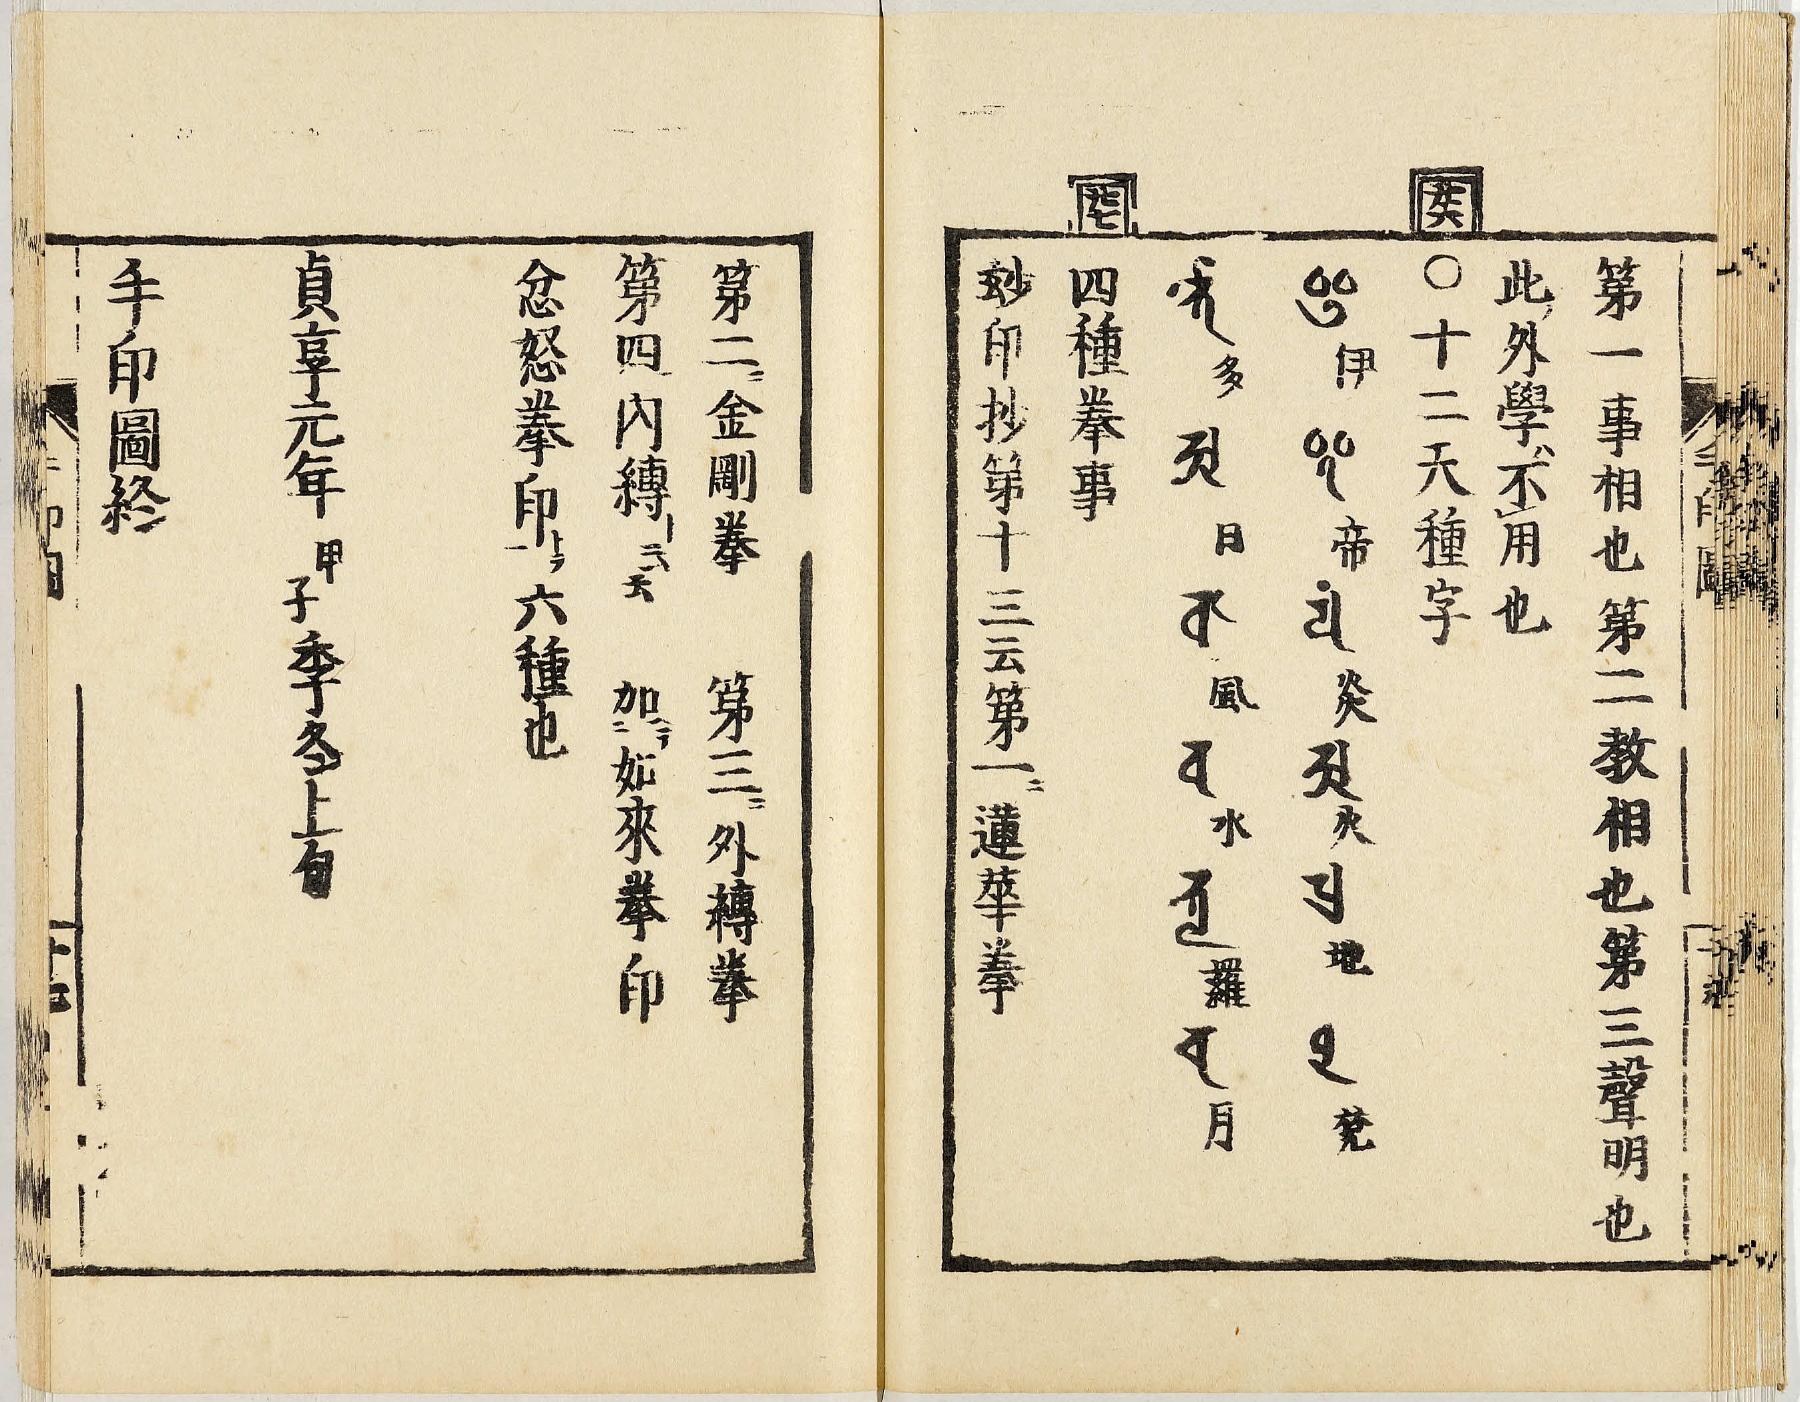 第一事相也第二教相也第三聲明也
此外學不用也
〇十二天種字
伊 帝 炎 火 地 梵
多 日 風 水 羅 月
四種拳事
玅印抄第十三云第一ニ蓮華拳
第二ニ金剛拳 第三ニ外縛拳
第四內縛 云云 加如來拳印
忿怒拳印 六種也
貞享元年甲子季冬上旬
手印圖終